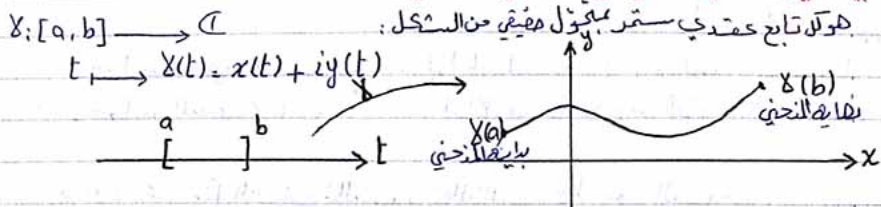 هو كل تابع عقدي مستمر بمتحول حقيقي من الشكل:
γ: [a, b] ⟶ ℂ
t ⟼ γ(t) = x(t) + iy(t)
γ
a b
[ ] t
y
γ(a)
بداية المنحني
γ(b)
نهاية المنحني
x